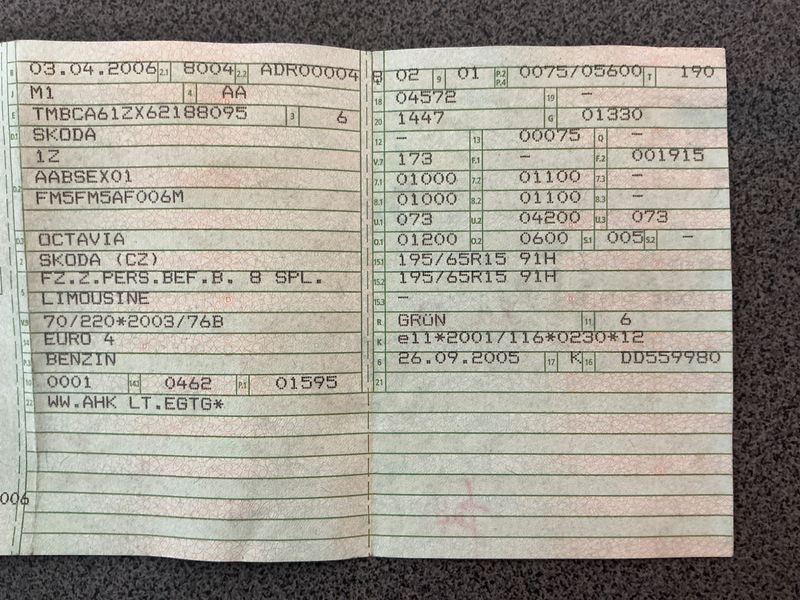 B 03.04.2006 2.1 8004 2.2 ADR00004
J M1 4 AA
E TMBCA61ZX62188095 3 6
D.1 SKODA
1Z
AABSEX01
D.2 FM5FM5AF006M
D.3 OCTAVIA
2 SKODA (CZ)
5 FZ.Z.PERS.BEF.B. 8 SPL.
LIMOUSINE
V.9 70/220*2003/76B
14 EURO 4
P.3 BENZIN
10 0001 14.1 0462 P.1 01595
22 WW.AHK LT.EGTG*
006
02 9 01 P.2 P.4 0075/05600 T 190
18 04572 19 –
20 1447 G 01330
12 – 13 00075 Q –
V.7 173 F.1 – F.2 001915
7.1 01000 7.2 01100 7.3 –
8.1 01000 8.2 01100 8.3 –
U.1 073 U.2 04200 U.3 073
O.1 01200 O.2 0600 S.1 005 S.2 –
15.1 195/65R15 91H
15.2 195/65R15 91H
15.3 –
R GRüN 11 6
K e11*2001/116*0230*12
6 26.09.2005 17 K 16 DD559980
21